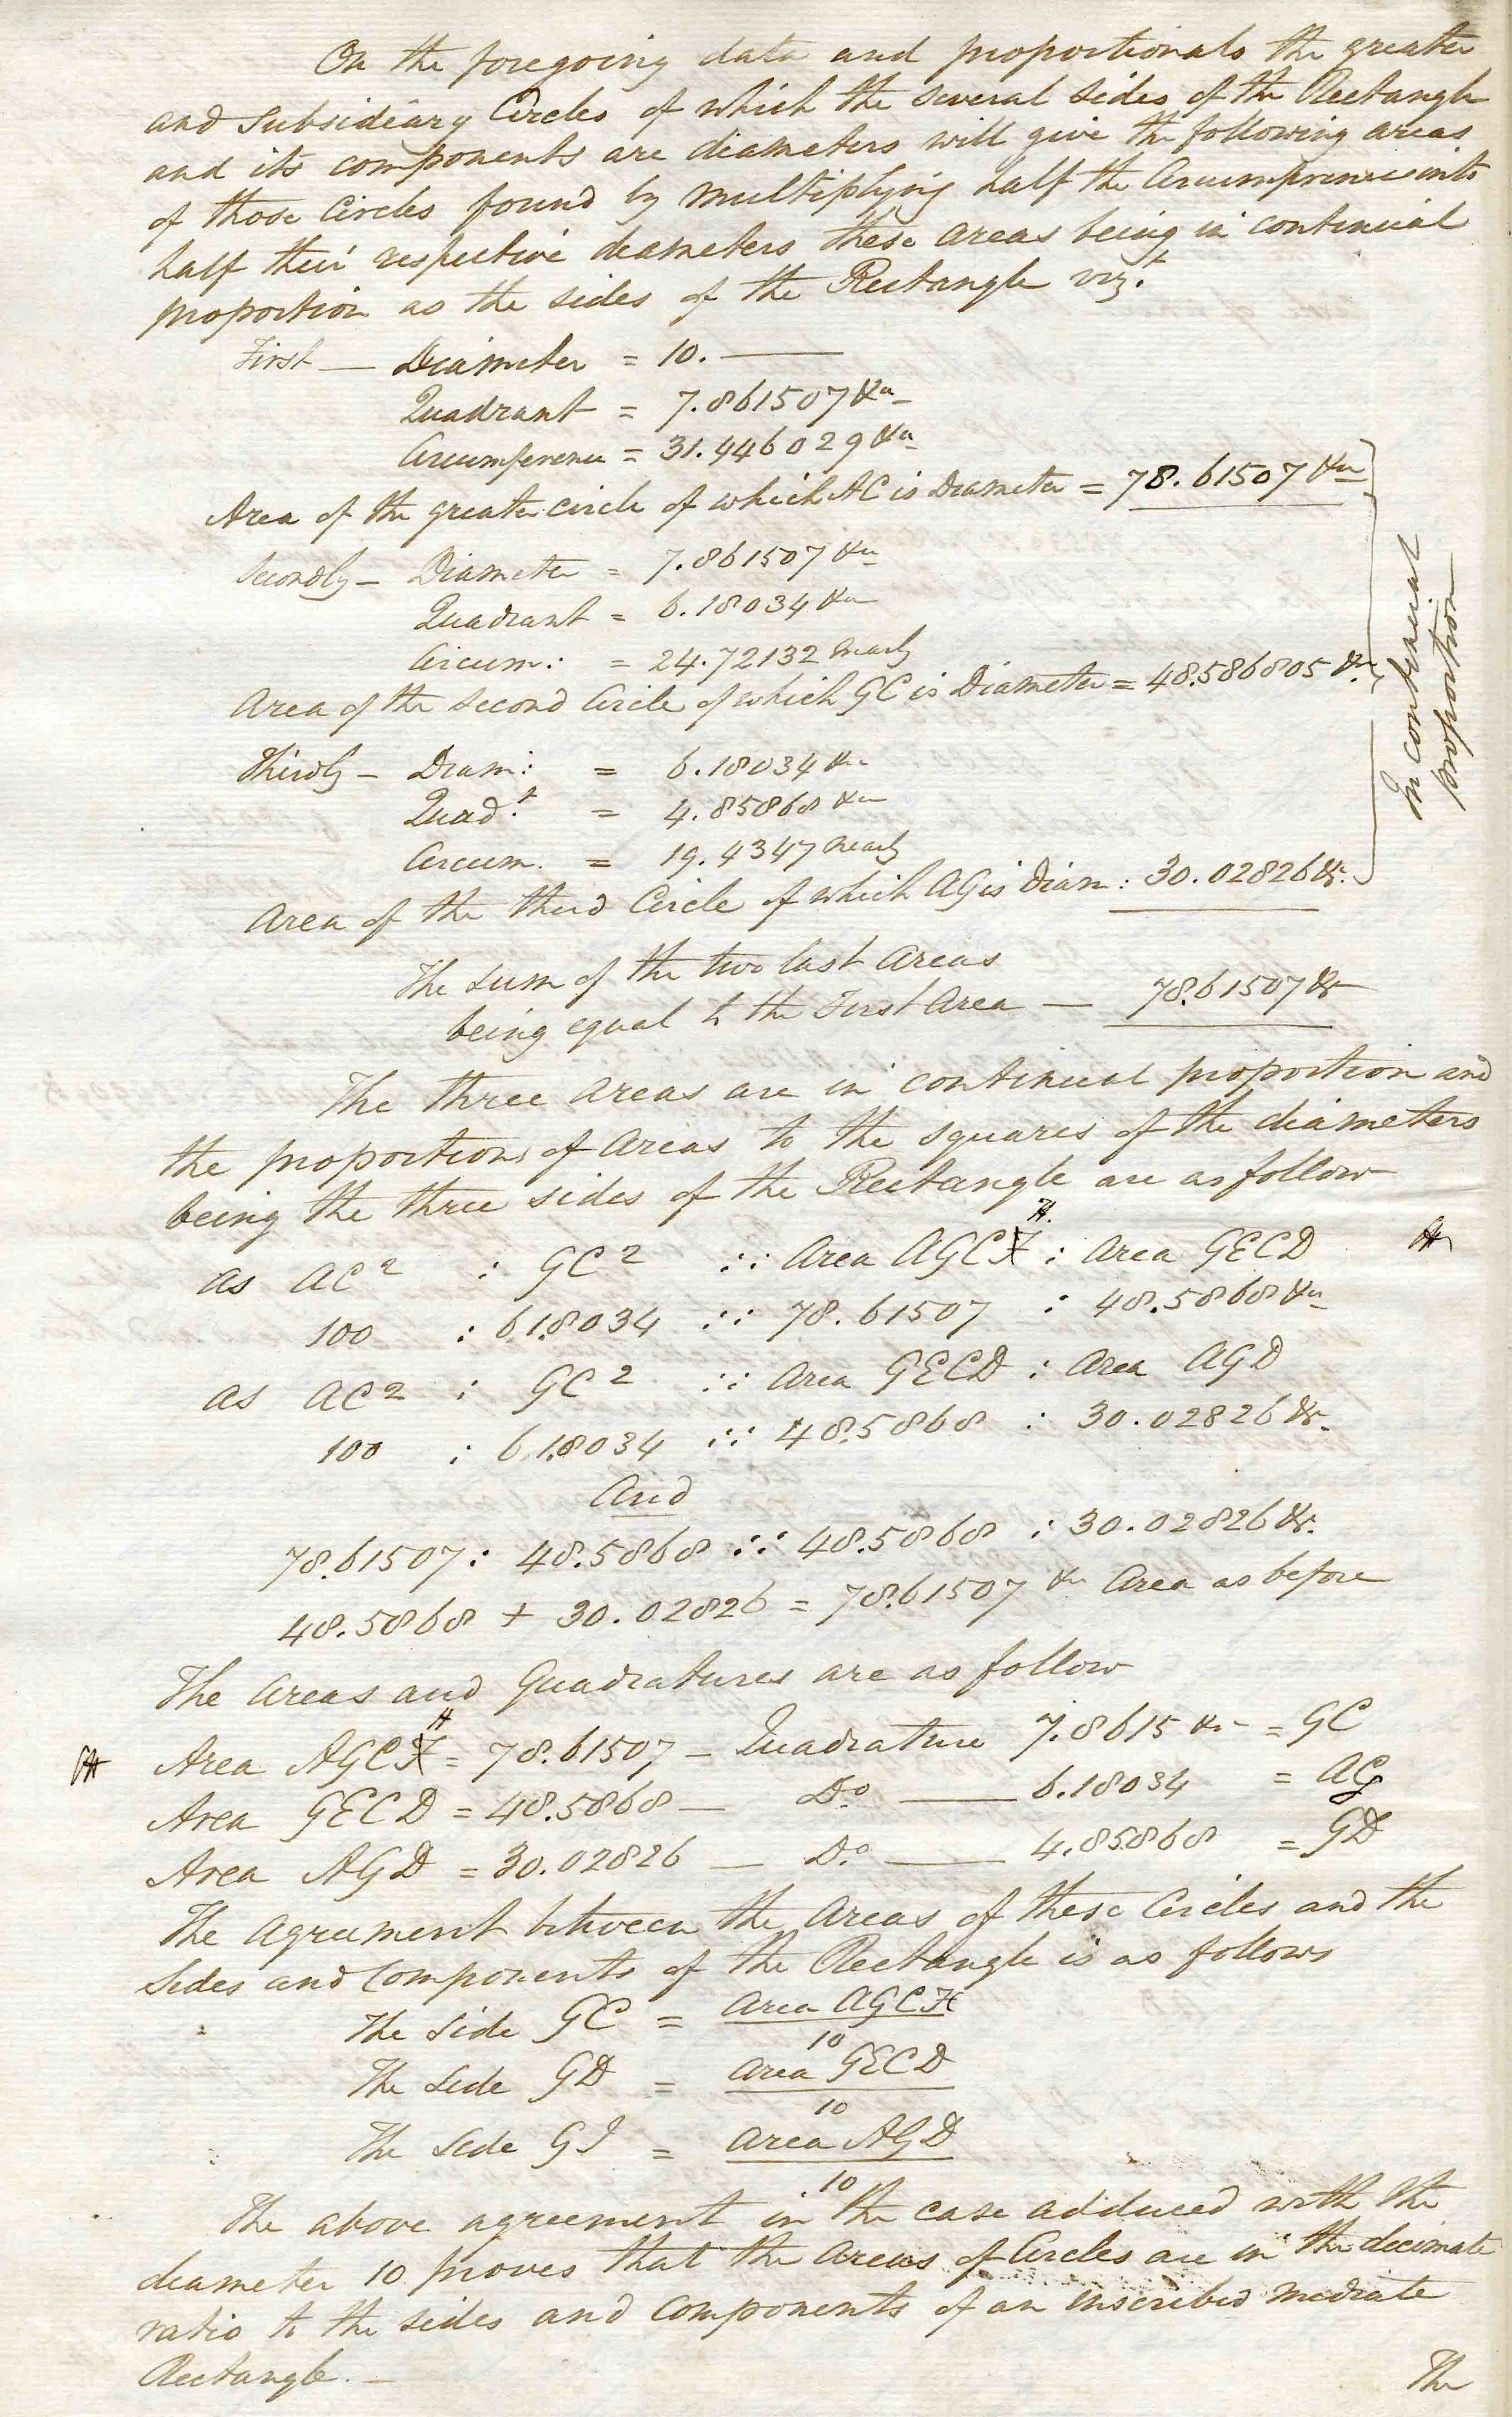 On the foregoing data and proportionals the greater
and Subsidiary Circles of which the several sides of the Rectangle
and its components are diameters will give the following areas
of those Circles found by multiplying half the Circumferences into
half their respective diameters these areas being in continual
proportion as the sides of the Rectangle viz.t
First — Diameter = 10. —
Quadrant = 7.861507 &c
Circumference = 31.446029 &c
Area of the greater circle of which AC is Diameter = 78.61507 &c
Secondly — Diameter = 7.861507 &c
Quadrant = 6.18034 &c
Circum: = 24.72132 nearly
Area of the Second Circle of which GC is Diameter = 48.586805 &c
Thirdly — Diam: = 6.18034 &c
Quad.t = 4.85868 &c
Circum. = 19.4347 nearly
Area of the third Circle of which AG is Diam: 30.02826 &c.
In continual
proportion
The Sum of the two last Areas
being equal to the First Area — 78.61507 &c
The three Areas are in continual proportion and
the proportions of Areas to the squares of the diameters
being the three sides of the Rectangle are as follow
H.
as AC2 : GC2 :: Area AGCF : Area GECD H
100 : 61.8034 :: 78.61507 : 48.5868 &c
as AC2 : GC2 :: Area GECD : Area AGD
100 : 61.8034 :: 48.5868 : 30.02826 &c.
And
78.61507 : 48.5868 :: 48.5868 : 30.02826 &c.
48.5868 + 30.02826 = 78.61507 &c Area as before
The Areas and Quadratures are as follow
H
H Area AGCF = 78.61507 — Quadrature 7.8615 &c = GC
Area GECD = 48.5868 — Do — 6.18034 = AG
Area AGD = 30.02826 — Do — 4.85868 = GD
The Agreement between the Areas of these Circles and the
Sides and Components of the Rectangle is as follows
The Side GC = Area AGCH
10
The Side GD = Area GECD
10
The Side GI = Area AGD
10
The above agreement in the case adduced with the
diameter 10 proves that the Areas of Circles are in the decimate
ratio to the sides and components of an inscribed mediate
Rectangle. —
The